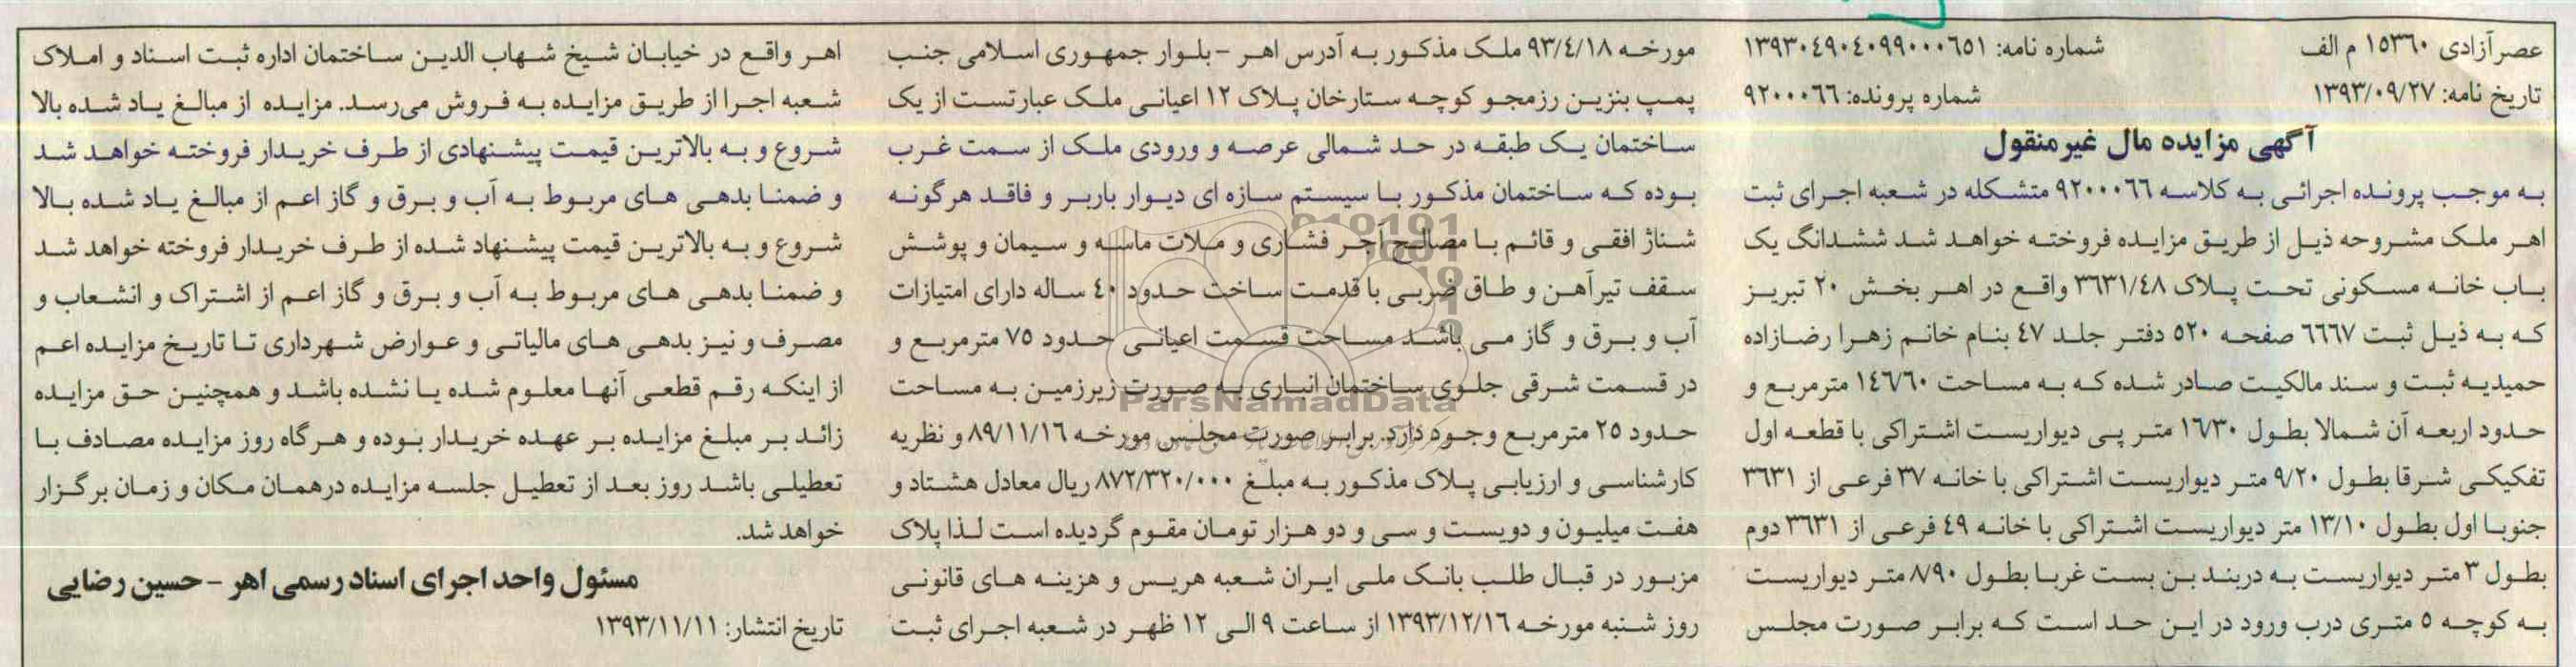 عصر آزادی ۱۵۳٦۰ م الف
شماره نامه: ۱۳۹۳۰٤۹۰٤۰۹۹۰۰۰٦۵۱
تاریخ نامه: ۱۳۹۳/۰۹/۲۷
شماره پرونده: ۹۲۰۰۰٦٦
آگهی مزایده مال غیر منقول
به موجب پرونده اجرائی به کلاسه ۹۲۰۰۰٦٦ متشکله در شعبه اجرای ثبت
اهر ملک مشروحه ذیل از طریق مزایده فروخته خواهد شد ششدانگ یک
باب خانه مسکونی تحت پلاک ۳٦۳۱/٤۸ واقع در اهر بخش ۲۰ تبریز
که به ذیل ثبت ٦٦٦۷ صفحه ۵۲۰ دفتر جلد ٤۷ بنام خانم زهرا رضازاده
حمیدیه ثبت و سند مالکیت صادر شده که به مساحت ۱٤٦/٦۰ مترمربع و
حدود اربعه آن شمالا بطول ۱٦/۳۰ متر پی دیواریست اشتراکی با قطعه اول
تفکیکی شرقا بطول ۹/۲۰ متر دیواریست اشتراکی با خانه ۳۷ فرعی از ۳٦۳۱
جنوبا اول بطول ۱۳/۱۰ متر دیواریست اشتراکی با خانه ٤۹ فرعی از ۳٦۳۱ دوم
بطول ۳ متر دیواریست به دربند بن بست غربا بطول ۸/۹۰ متر دیواریست
به کوچه ۵ متری درب ورود در این حد است که برابر صورت مجلس
مورخه ۹۳/٤/۱۸ ملک مذکور به آدرس اهر - بلوار جمهوری اسلامی جنب
پمپ بنزین رزمجو کوچه ستارخان پلاک ۱۲ اعیانی ملک عبارتست از یک
ساختمان یک طبقه در حد شمالی عرصه و ورودی ملک از سمت غرب
بوده که ساختمان مذکور با سیستم سازه ای دیوار باربر و فاقد هرگونه
شناژ افقی و قائم با مصالح آجر فشاری و ملات ماسه و سیمان و پوشش
سقف تیرآهن و طاق ضربی با قدمت ساخت حدود ٤۰ ساله دارای امتیازات
آب و برق و گاز می باشد مساحت قسمت اعیانی حدود ۷۵ مترمربع و
در قسمت شرقی جلوی ساختمان انباری به صورت زیرزمین به مساحت
حدود ۲۵ مترمربع وجود دارد. برابر صورت مجلس مورخه ۸۹/۱۱/۱٦ و نظریه
کارشناسی و ارزیابی پلاک مذکور به مبلغ ۸۷۲/۳۲۰/۰۰۰ ریال معادل هشتاد و
هفت میلیون و دویست و سی و دو هزار تومان مقوم گردیده است لذا پلاک
مزبور در قبال طلب بانک ملی ایران شعبه هریس و هزینه های قانونی
روز شنبه مورخه ۱۳۹۳/۱۲/۱٦ از ساعت ۹ الی ۱۲ ظهر در شعبه اجرای ثبت
اهر واقع در خیابان شیخ شهاب الدین ساختمان اداره ثبت اسناد و املاک
شعبه اجرا از طریق مزایده به فروش می‌رسد. مزایده از مبالغ یاد شده بالا
شروع و به بالاترین قیمت پیشنهادی از طرف خریدار فروخته خواهد شد
و ضمنا بدهی های مربوط به آب و برق و گاز اعم از مبالغ یاد شده بالا
شروع و به بالاترین قیمت پیشنهاد شده از طرف خریدار فروخته خواهد شد
و ضمنا بدهی های مربوط به آب و برق و گاز اعم از اشتراک و انشعاب و
مصرف و نیز بدهی های مالیاتی و عوارض شهرداری تا تاریخ مزایده اعم
از اینکه رقم قطعی آنها معلوم شده یا نشده باشد و همچنین حق مزایده
زائد بر مبلغ مزایده بر عهده خریدار بوده و هرگاه روز مزایده مصادف با
تعطیلی باشد روز بعد از تعطیل جلسه مزایده درهمان مکان و زمان برگزار
خواهد شد.
مسئول واحد اجرای اسناد رسمی اهر - حسین رضایی
تاریخ انتشار: ۱۳۹۳/۱۱/۱۱
ParsNamadData